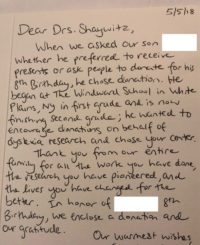 5/5/18
Dear Drs. Shaywitz,
When we asked our son
whether he preferred to receive
presents or ask people to donate for his
8th Birthday, he chose donation. He
began at The Windward School in White
Plains, NY in first grade and is now
finishing second grade; he wanted to
encourage donations on behalf of
dyslexia research and chose your center.
Thank you from our entire
family for all the work you have done,
the research you have pioneered, and
the lives you have changed for the
better. In honor of 8th
Birthday, we enclose a donation and
our gratitude.
Our warmest wishes,